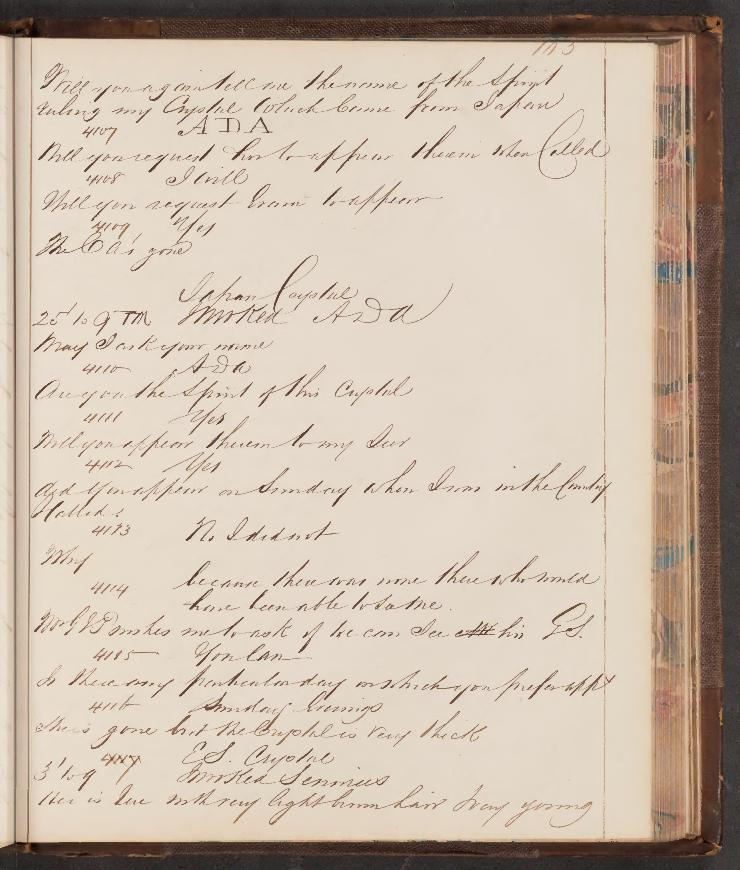 183
Will you again tell me the name of the Spirit
ruling my Crystal which came from Japan
4107 ADA
Will you request her to appear therein when Called
4108 I will
Will you request to appear
4109 Yes
The C A is gone
Japan Crystal
25' to 9 PM Invoked ADA
May I ask your name
4110 ADa
Are you the Spirit of this Crystal
4111 Yes
Will you appear therein to my Seer
4112 Yes
did you appear on Sunday when I was in the Country
& called
4113 No I did not
Why
4114 because there was none there who would
have been able to see me.
Mr wishes me to ask if he can See his G.S.
4115 You Can
Is there any particular day on which you prefer appg
4116 Sunday Evenings
She is gone but the Crystal is very thick
4117 E.S. Crystal
3' to 9 Invoked
He is here with very light brown hair & very young